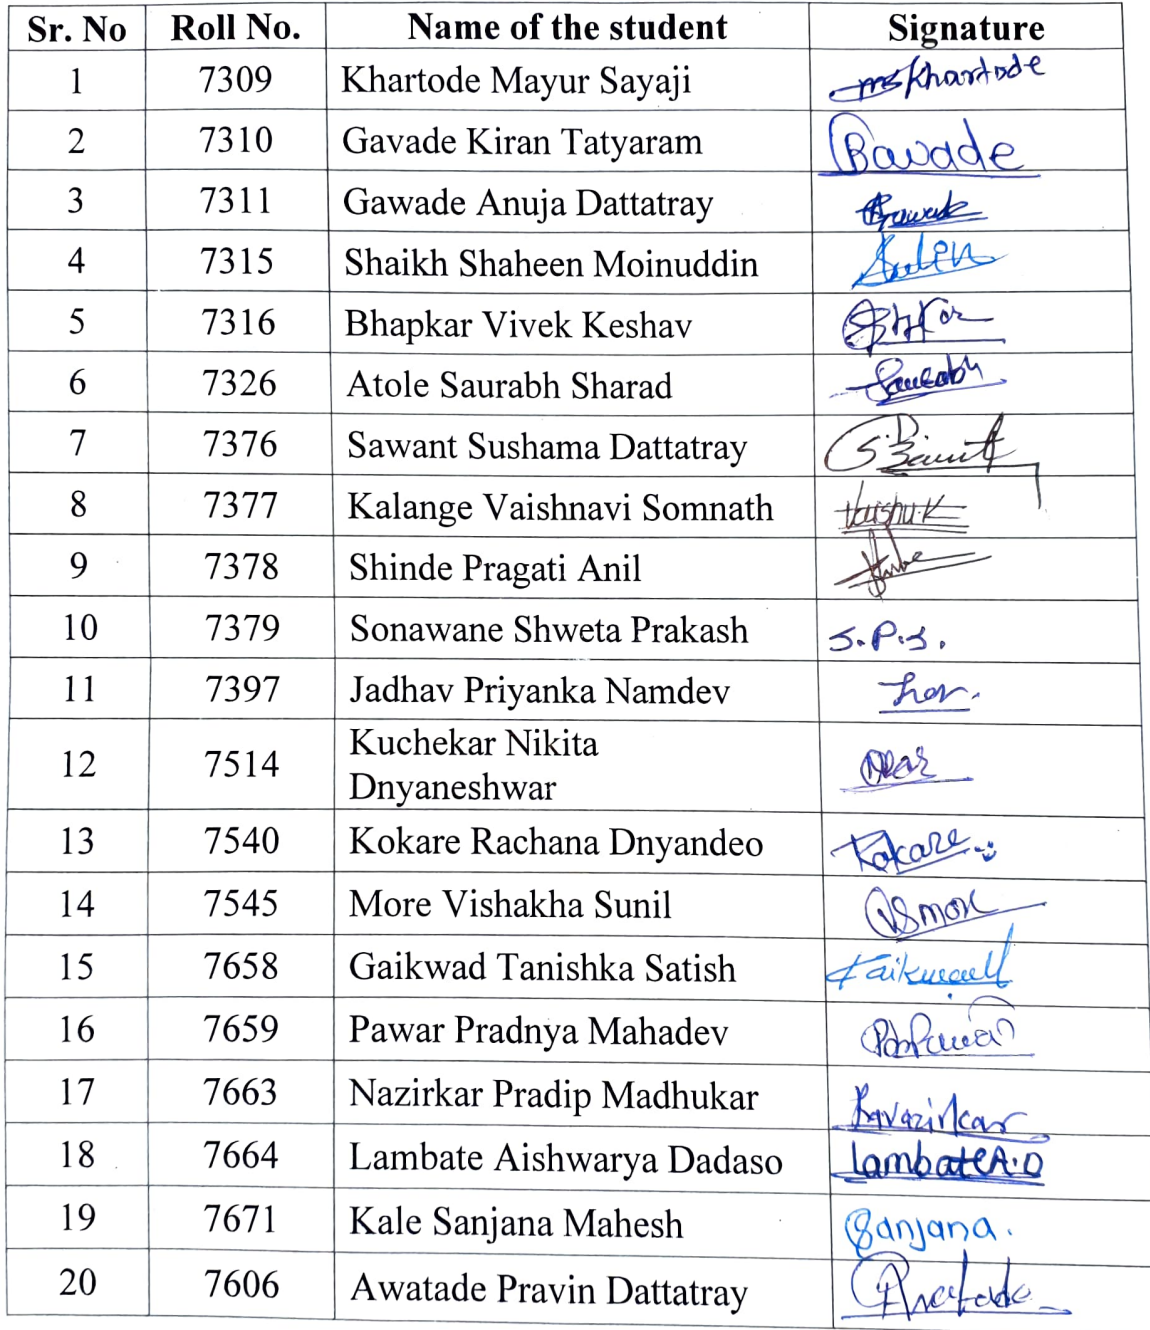 Sr. No Roll No. Name of the student Signature
1 7309 Khartode Mayur Sayaji mskhartode
2 7310 Gavade Kiran Tatyaram
3 7311 Gawade Anuja Dattatray
4 7315 Shaikh Shaheen Moinuddin
5 7316 Bhapkar Vivek Keshav
6 7326 Atole Saurabh Sharad Saurabh
7 7376 Sawant Sushama Dattatray
8 7377 Kalange Vaishnavi Somnath Vaishu.K
9 7378 Shinde Pragati Anil
10 7379 Sonawane Shweta Prakash S.P.S.
11 7397 Jadhav Priyanka Namdev
12 7514 Kuchekar Nikita
Dnyaneshwar
13 7540 Kokare Rachana Dnyandeo Kokare
14 7545 More Vishakha Sunil VSmore
15 7658 Gaikwad Tanishka Satish Gaikwad
16 7659 Pawar Pradnya Mahadev
17 7663 Nazirkar Pradip Madhukar
18 7664 Lambate Aishwarya Dadaso Lambate A.D
19 7671 Kale Sanjana Mahesh Sanjana.
20 7606 Awatade Pravin Dattatray